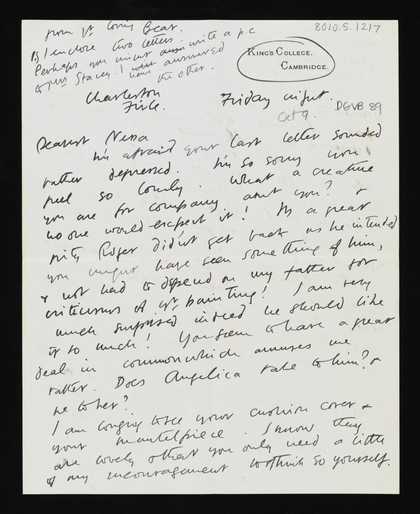 from yr loving Bear.
I enclose two letters.
Perhaps you might write a p.c
to Stacey I answered
the other.
8010.5.1217
KING'S COLLEGE,
CAMBRIDGE.
Charleston
Firle.
Friday night.
Oct 9.
DGVB 89
Dearest Nessa
I'm afraid your last letter sounded
rather depressed. I'm so sorry you
feel so lonely. What a creature
you are for company aren't you? &
no one would expect it! It's a great
pity Roger didn't get back as he intended
you might have seen something of him,
& not had to depend on my father for
criticisms of yr painting! I am very
much surprised indeed he should like
it so much! You seem to have a great
deal in common which amuses me
rather. Does Angelica take to him? &
he to her?
I am longing to see your cushion cover &
your mantelpiece. I know they
are lovely & that you only need a little
of my encouragement to think so yourself.